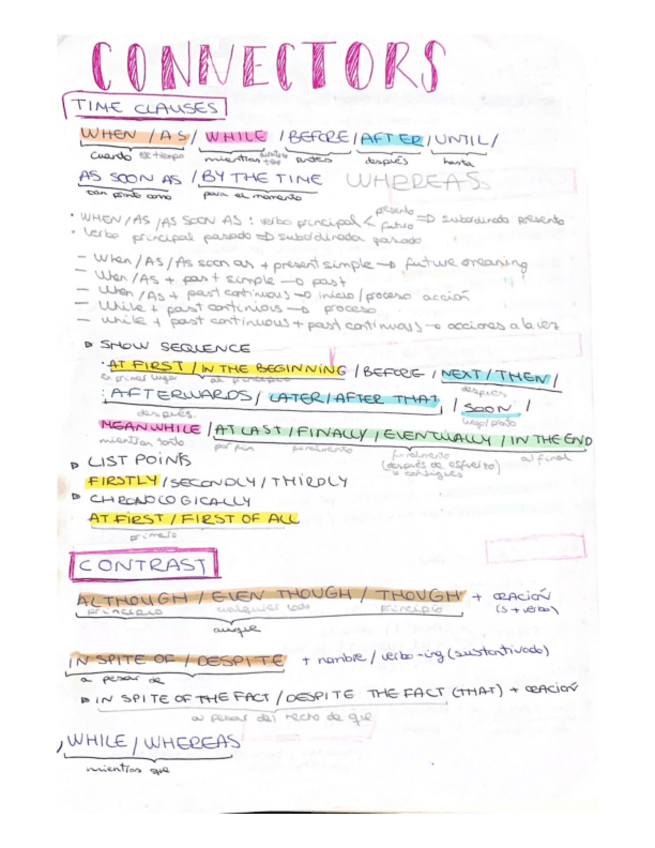 CONNECTORS
TIME CLAUSES
WHEN / AS / WHILE / BEFORE / AFTER / UNTIL /
cuando mientras antes después hasta
AS SOON AS / BY THE TIME WHEREAS
tan pronto como para el momento
• WHEN / AS / AS SOON AS : verbo principal < presente futuro => subordinada presente
• Verbo principal pasado => subordinada pasado
- When / AS / As soon as + present simple → future meaning
- When / As + past simple → past
- When / As + past continuous → inicio / proceso acción
- While + past continuous → proceso
- while + past continuous + past continuous → acciones a la vez
SHOW SEQUENCE
· AT FIRST / IN THE BEGINNING / BEFORE / NEXT / THEN /
en primer lugar al principio después
: AFTERWARDS / LATER / AFTER THAT / SOON /
después luego / pronto
MEANWHILE / AT LAST / FINALLY / EVENTUALLY / IN THE END
mientras tanto por fin finalmente finalmente al final
(después de esfuerzo)
LIST POINTS
FIRSTLY / SECONDLY / THIRDLY
CHRONOLOGICALLY
AT FIRST / FIRST OF ALL
primero
CONTRAST
ALTHOUGH / EVEN THOUGH / THOUGH + ORACIÓN
principio cualquier lado principio (s + verbo)
aunque
IN SPITE OF / DESPITE + nombre / verbo -ing (sustantivado)
a pesar de
IN SPITE OF THE FACT / DESPITE THE FACT (THAT) + ORACIÓN
a pesar del hecho de que
, WHILE / WHEREAS
mientras que